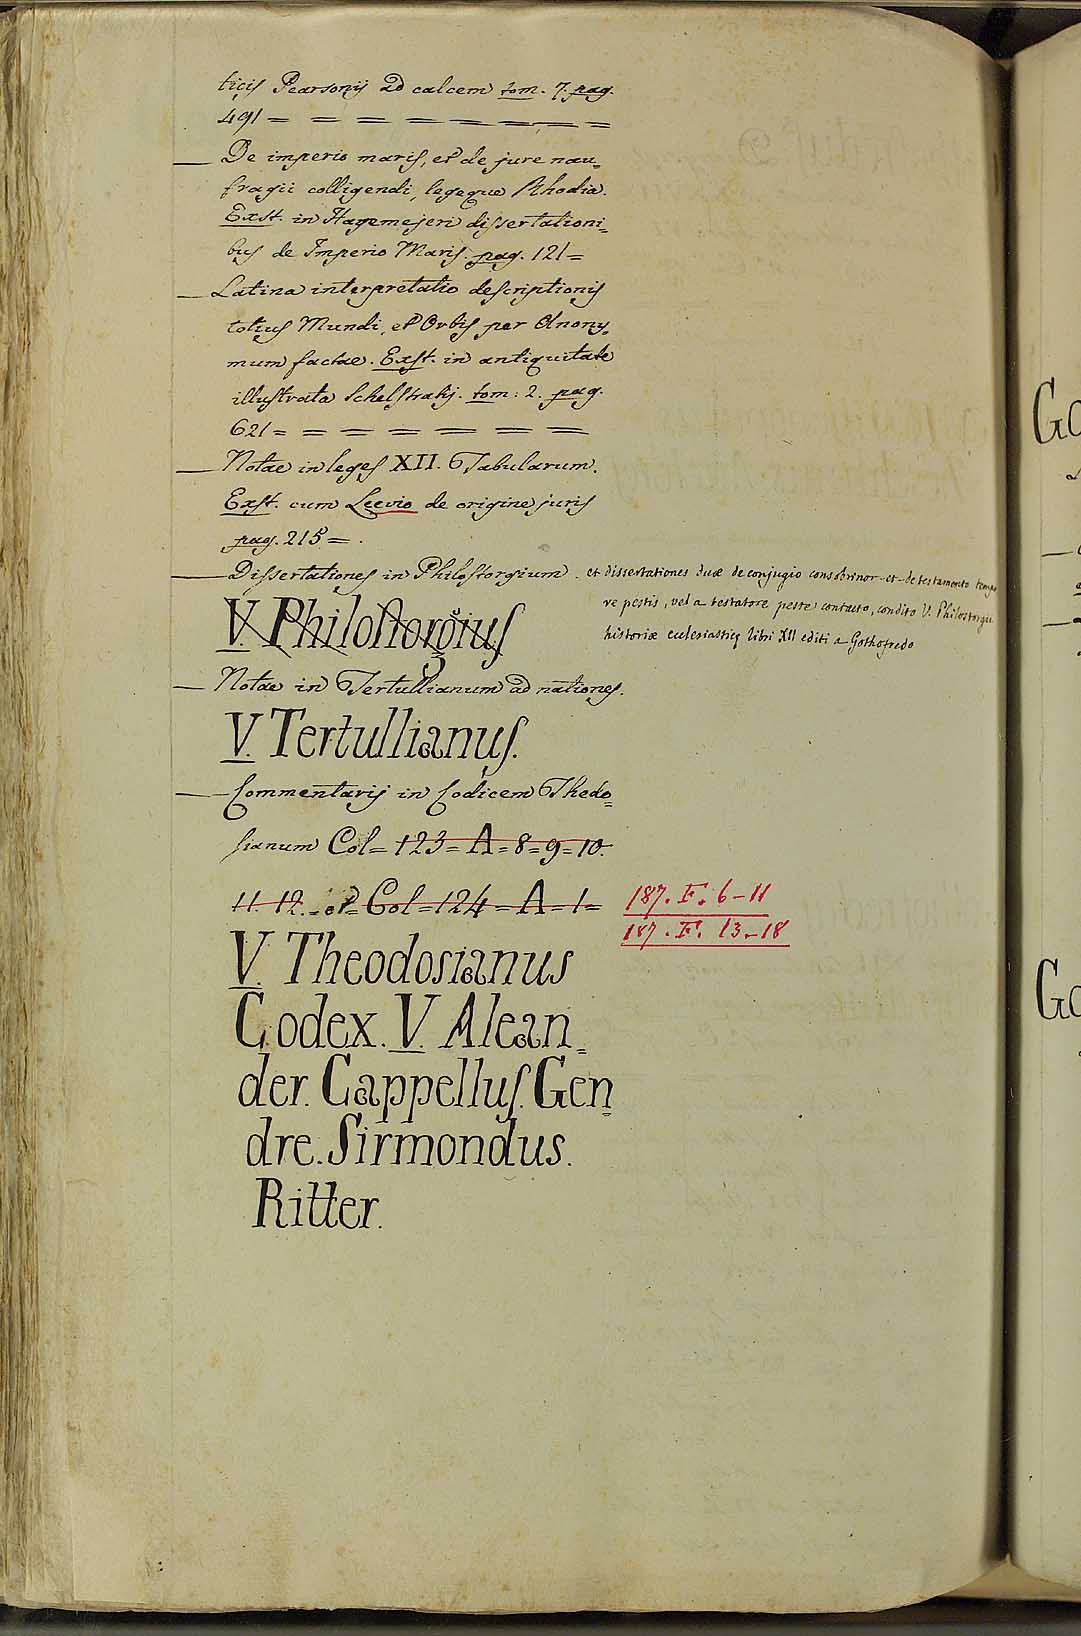 ticis Pearsonij ad calcem tom. 7. pag.
491 = = = = = = = = =
— De imperio maris, et de jure nau=
fragii colligendi, legeque Rhodia.
Exst. in Hagemejeri dissertationi=
bus de Imperio Maris. pag. 121 =
— Latina interpretatio descriptionis
totius Mundi, et Orbis per Anony=
mum factae. Exst. in antiquitate
illustrata Schelstratij. tom: 2. pag.
621 = = = = = = = =
— Notae in leges XII. Tabularum.
Exst. cum Leevio de origine juris
pag. 215 = .
— Dissertationes in Philostorgium. et dissertationes duæ de conjugio consobrinor. et de testamento tempo
re pestis, vel a testatore peste contacto, condito V. Philostorgii
historiæ ecclesiasticę libri XII editi a Gothofredo
V. Philostorgius
— Notae in Tertullianum ad nationes.
V. Tertullianus.
— Commentarij in Codicem Thedo=
sianum Col= 123 = A = 8 = 9 = 10.
11. 12. = et Col = 124 = A = 1 =
187. F. 6 - 11
187. F. 13 - 18
V. Theodosianus
Codex. V. Alean=
der. Cappellus. Gen=
dre. Sirmondus.
Ritter.
Go
Go